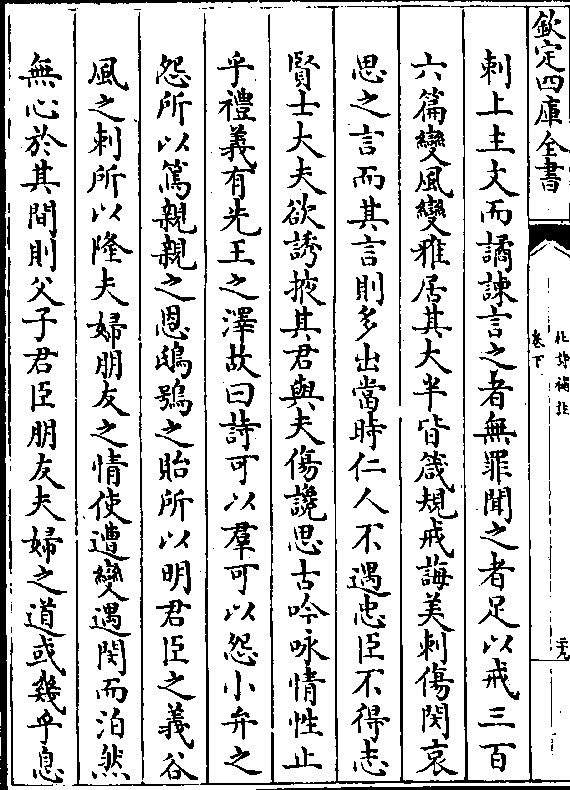 欽定四庫全書
卷下
刺上主文而譎諫言之者無罪聞之者足以戒三百
六篇變風變雅居其大半皆箴規戒誨美刺傷閔哀
思之言而其言則多出當時仁人不遇忠臣不得志
賢士大夫欲誘掖其君與夫傷讒思古吟咏情性止
乎禮義有先王之澤故曰詩可以羣可以怨小弁之
怨所以篤親親之恩鴟鴞之貽所以明君臣之義谷
風之刺所以隆夫婦朋友之情使遭變遇閔而泊然
無心於其間則父子君臣朋友夫婦之道或幾乎息